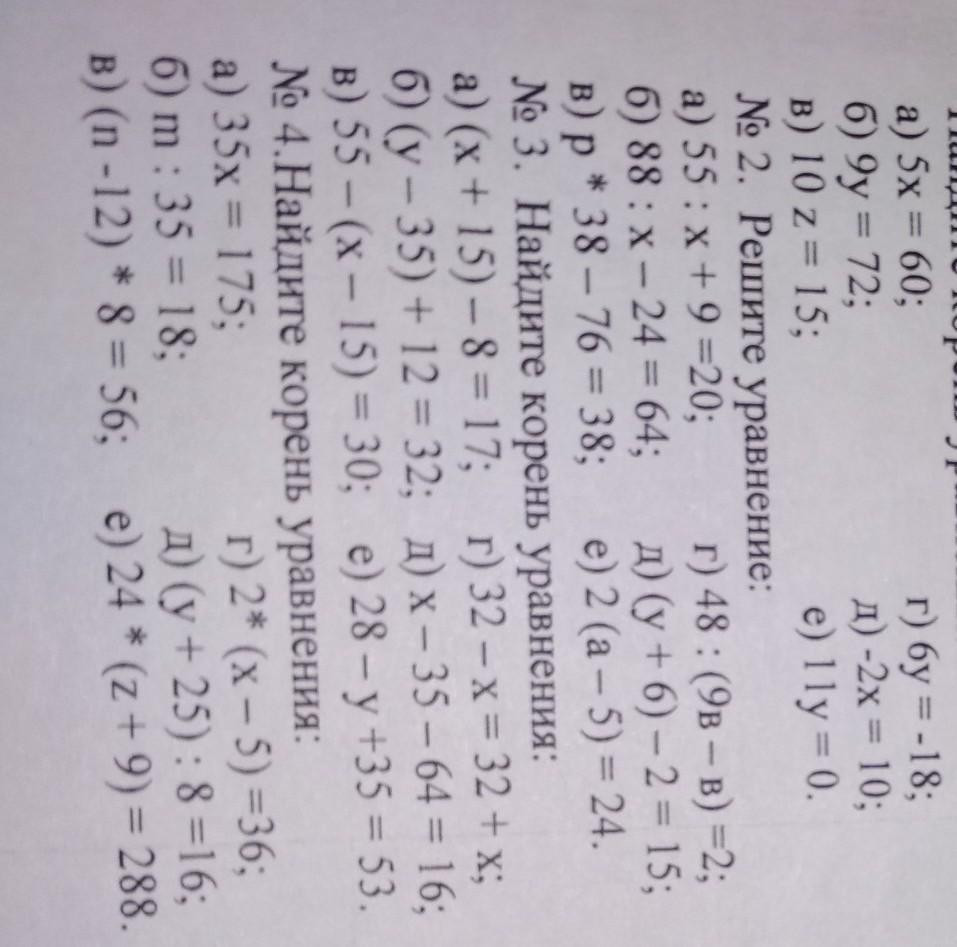 а) 5x = 60; г) 6y = -18;
б) 9y = 72; д) -2x = 10;
в) 10 z = 15; е) 11y = 0.
№ 2. Решите уравнение:
а) 55 : x + 9 =20; г) 48 : (9в – в) =2;
б) 88 : x – 24 = 64; д) (y + 6) – 2 = 15;
в) p * 38 – 76 = 38; е) 2 (a – 5) = 24.
№ 3. Найдите корень уравнения:
а) (x + 15) – 8 = 17; г) 32 – x = 32 + x;
б) (y – 35) + 12 = 32; д) x – 35 – 64 = 16;
в) 55 – (x – 15) = 30; е) 28 – y +35 = 53.
№ 4.Найдите корень уравнения:
а) 35x = 175; г) 2* (x – 5) =36;
б) m : 35 = 18; д) (y + 25) : 8 =16;
в) (n -12) * 8 = 56; е) 24 * (z + 9) = 288.